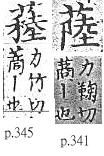 力竹切
蔏丨也
p.345
力鞠切
蔏丨也
p.341